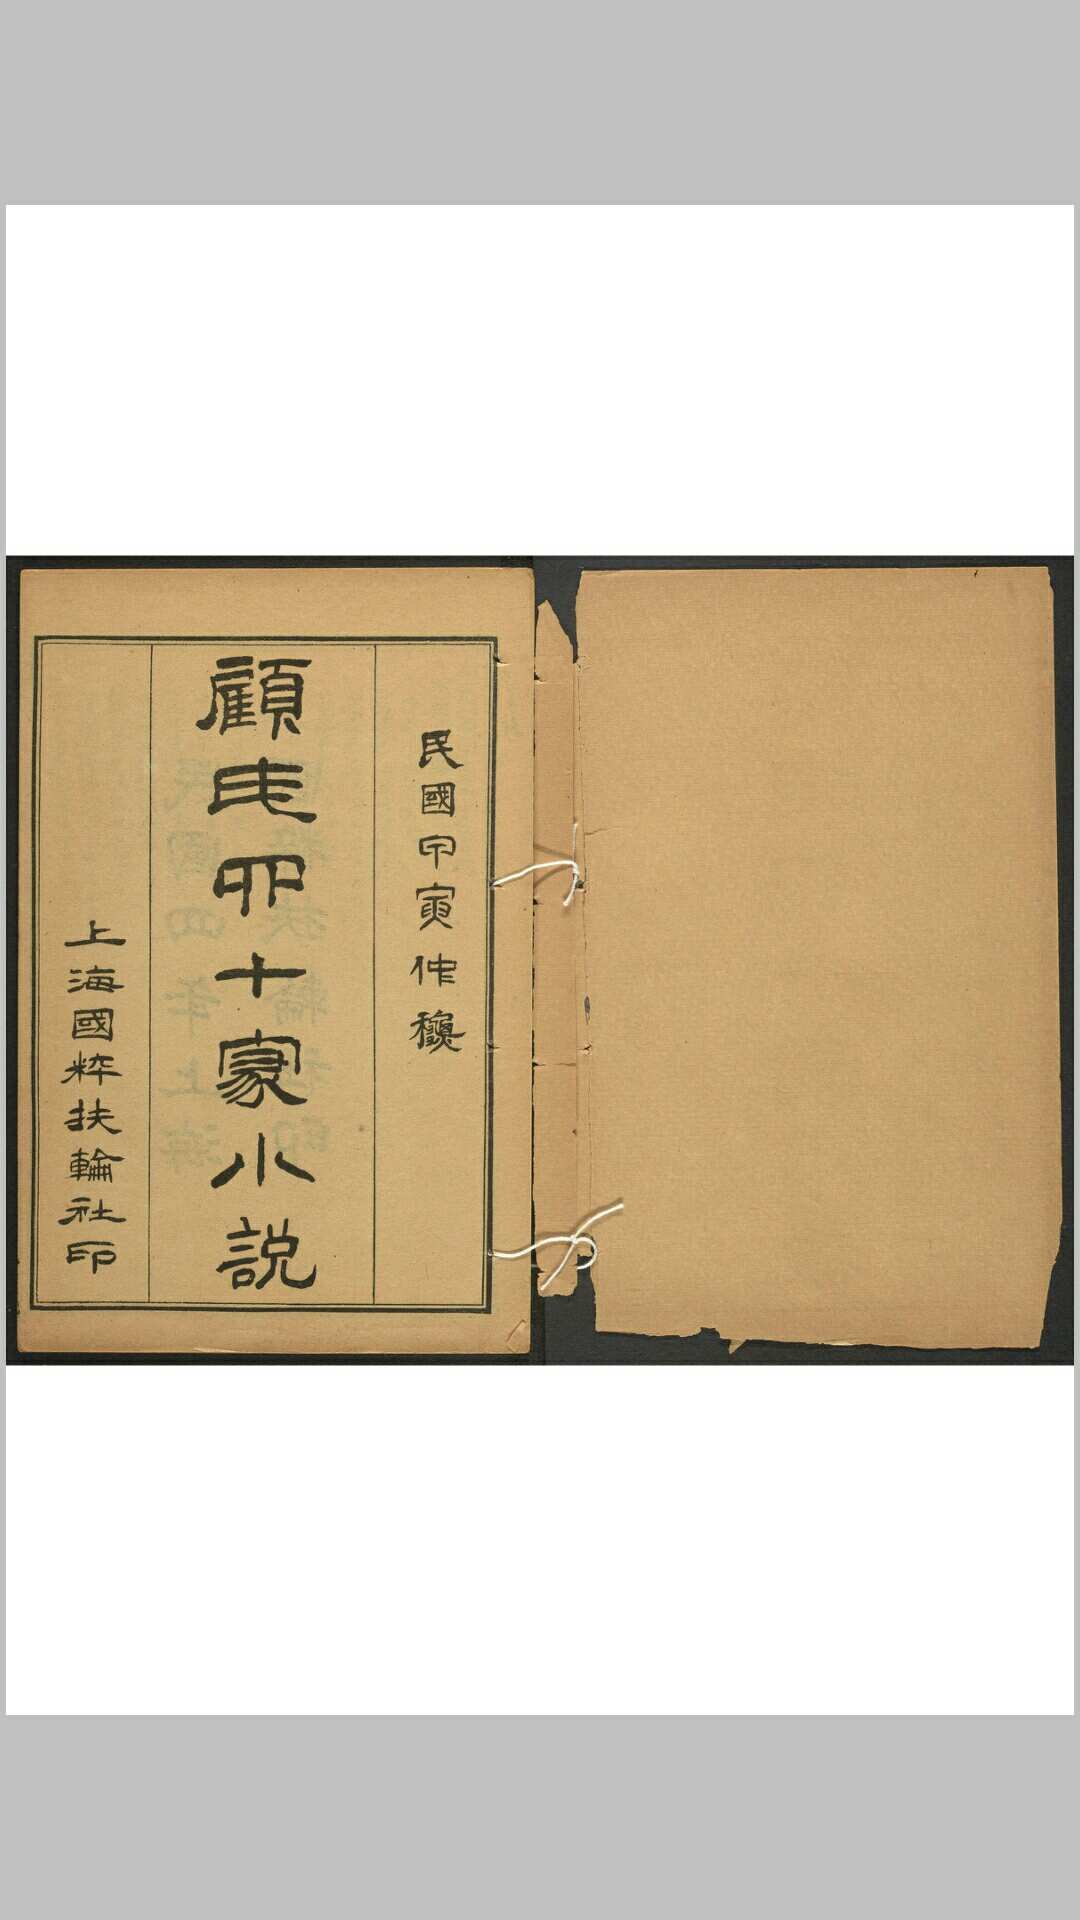 民國甲寅仲龝
顧氏四十家小説
上海國粹扶輪社印